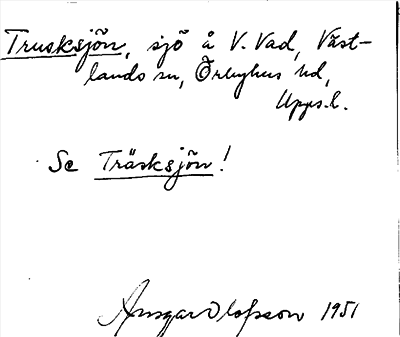 Trusksjön, sjö å V. Vad, Väst-
lands sn, Örbyhus hd,
Upps. l.
Se Träsksjön!
Ansgar Olofsson 1951